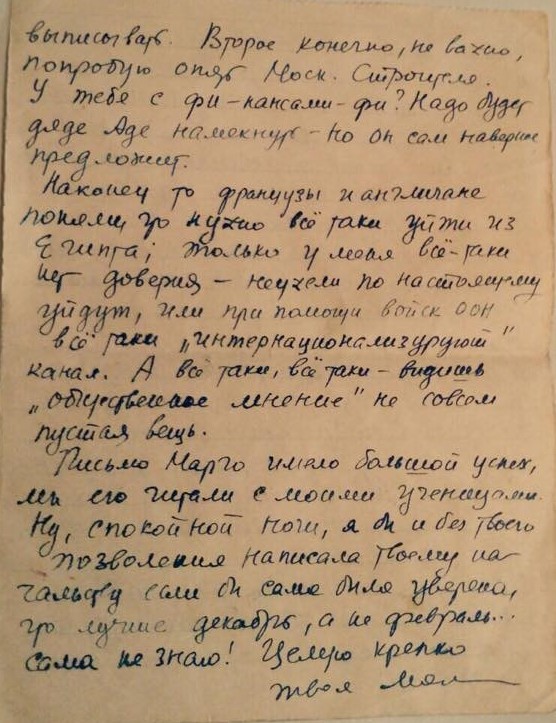 выписывать. Второе конечно, не важно,
попробую опять Моск. Строителя.
У тебя с фи-нансами-фи? Надо будет
дяде Аде намекнуть - но он сам наверное
предложит.
Наконец то французы и англичане
поняли, что нужно всё таки уйти из
Египта; только у меня всё-таки
нет доверия – неужели по настоящему
уйдут, или при помощи войск ООН
всё таки „интернационализируют"
канал. А всё таки, всё таки – видишь
„общественное мнение" не совсем
пустая вещь.
Письмо Марго имело большой успех,
мы его читали с моими ученицами.
Ну, спокойной ночи, я бы и без твоего
позволения написала твоему на-
чальству если бы сама была уверена,
что лучше декабрь, а не февраль...
сама не знаю! Целую крепко
твоя